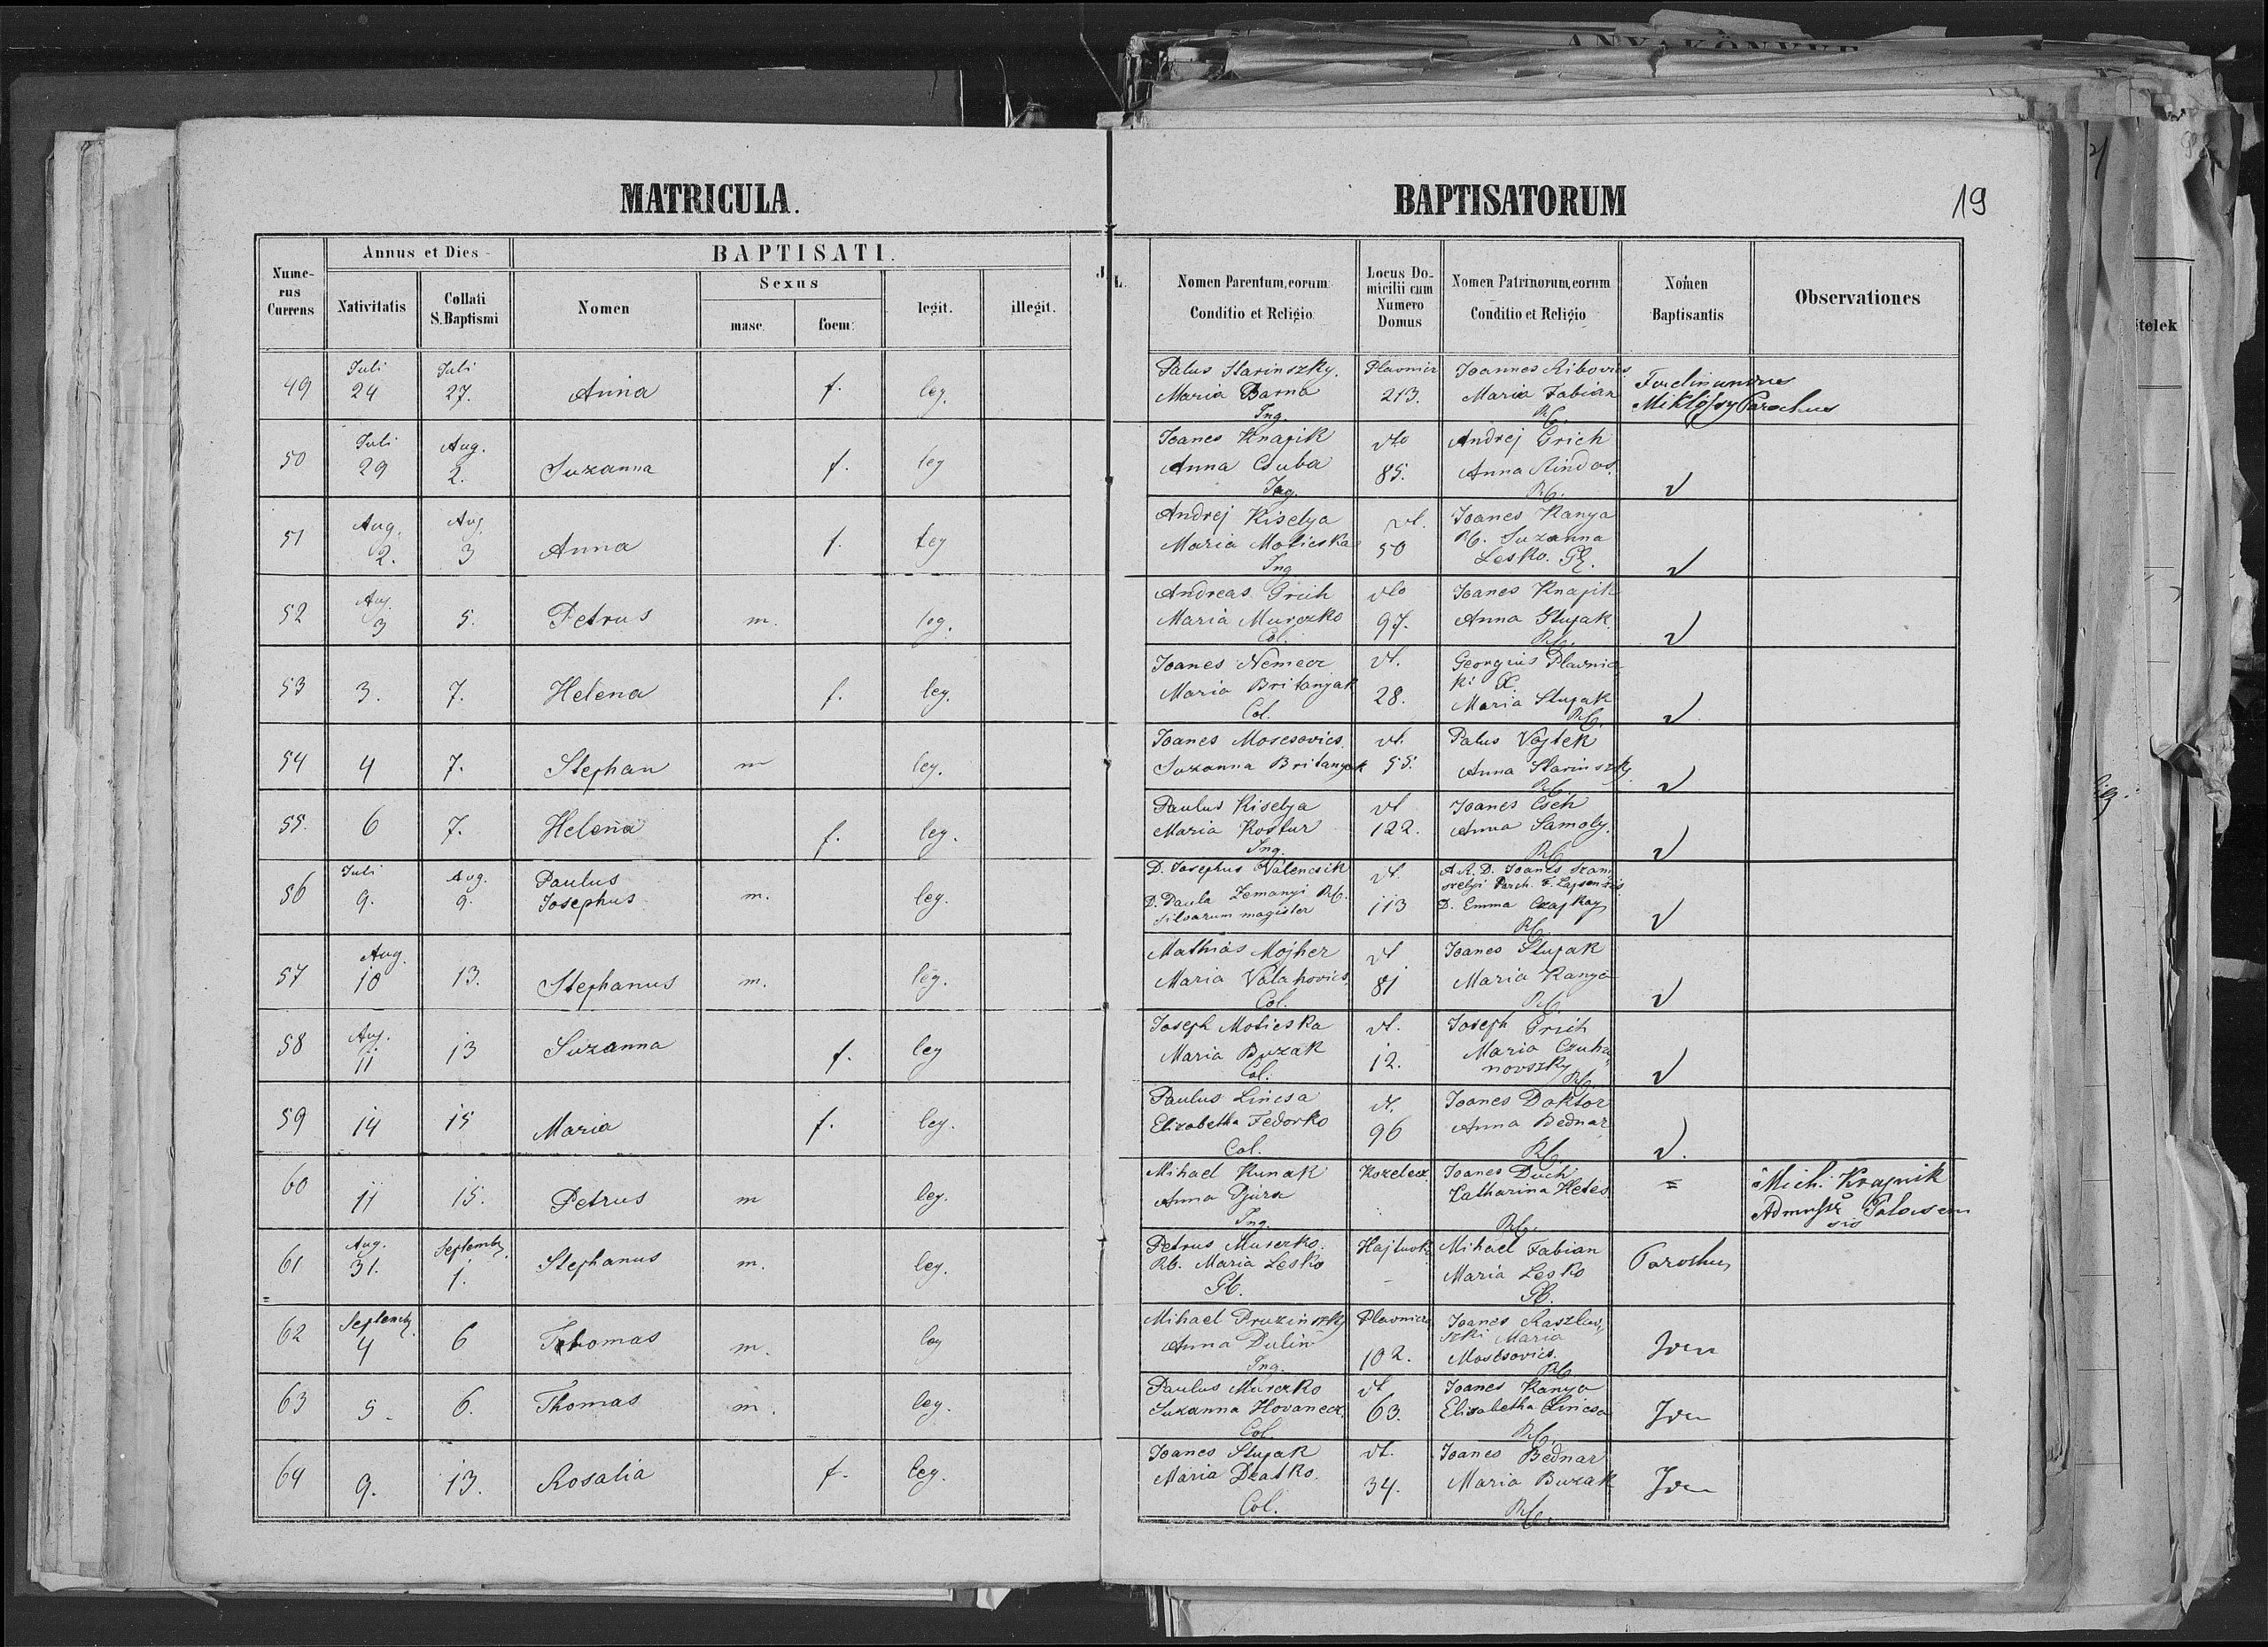 ANYAKÖNYVE
MATRICULA.
BAPTISATORUM
19
Numerus Currens
Annus et Dies
Nativitatis
Collati S. Baptismi
BAPTISATI.
Nomen
Sexus
masc.
foem:
legit.
illegit.
Nomen Parentum, eorum Conditio et Religio
Locus Domicilii cum Numero Domus
Nomen Patrinorum, eorum Conditio et Religio
Nomen Baptisantis
Observationes
49 Juli 24 Juli 27. Anna f. leg. Palus Starinszky. Maria Barna Ing. Plavnicz 213. Joannes Ribovics Maria Fabian RC. Ferdinandus Miklossy Parochus
50 Juli 29 Aug. 2. Suzanna f. leg Joanes Knapik Anna Csuba Ing. vto 85. Andrej Grich Anna Rindos. RC. √
51 Aug. 2. Aug 3 Anna f. leg Andrej Kiselya Maria Moticska Ing vt. 50 Joanes Kanya RC. Suzanna Lesko. GC. √
52 Aug. 3 5. Petrus m. leg. Andreas Grich Maria Murczko Col. vto 97. Joanes Knapik Anna Stupak RC. √
53 3. 7. Helena f. leg. Joanes Nemecz Maria Britanyak Col. vt. 28. Georgius Plavnicki Maria Stupak RC √
54 4 7. Stephan m leg. Joanes Mosesovics. Suzanna Britanyak vt. 55. Palus Vojtek Anna Starinszky. RC. √
55. 6 7. Helena f. leg. Paulus Kiselya Maria Kostur Ing. vt 122. Joanes Cseh Anna Samoly. RC √
56 Juli 9. Aug. 9. Paulus Josephus m. leg. D. Josephus Valencsik D. Paula Zemanyi RC. silvarum magister vt. 113 A.R.D. Joanes D. Emma Czajkay RC √
57 Aug. 10 13. Stephanus m. leg. Mathias Mojher Maria Valahovics Col. vt 81 Joanes Stupak Maria Kanya RC. √
58 Aug. 11 13 Suzanna f. leg Joseph Moticska Maria Buzak Col. vt. 12. Joseph Grich Maria Czuhanovszky RC √
59 14 15 Maria f. leg. Paulus Lincsa Elizabetha Fedorko Col. vt. 96 Joanes Doktor Anna Bednar RC √.
60 11 15. Petrus m leg. Mihael Kunak Anna Gjura Ing. Kozelecz Joanes Duch Catharina Hetes RC. = Mich. Krajnik
61 Aug. 31. Septemb. 1. Stephanus m. leg. Petrus Murczko. RC. Maria Lesko GC. Hajtuvka Mihael Fabian Maria Lesko GC. Parochus
62 Septemb. 4 6 Thomas m. leg Mihael Druzinszky Anna Dulin Ing. Plavnicz 102. Joanes Raszlavszki Maria Mosesovics. RC Idem
63 5. 6. Thomas m. leg. Paulus Murczko Suzanna Hovanecz. Col. vt 63. Joanes Kanya Elisabetha Lincsa RC. Idem
64 9. 13. Rosalia f. leg. Joanes Stupak Maria Dratko. Col. vt. 34. Joanes Bednar Maria Buzak RC. Idem